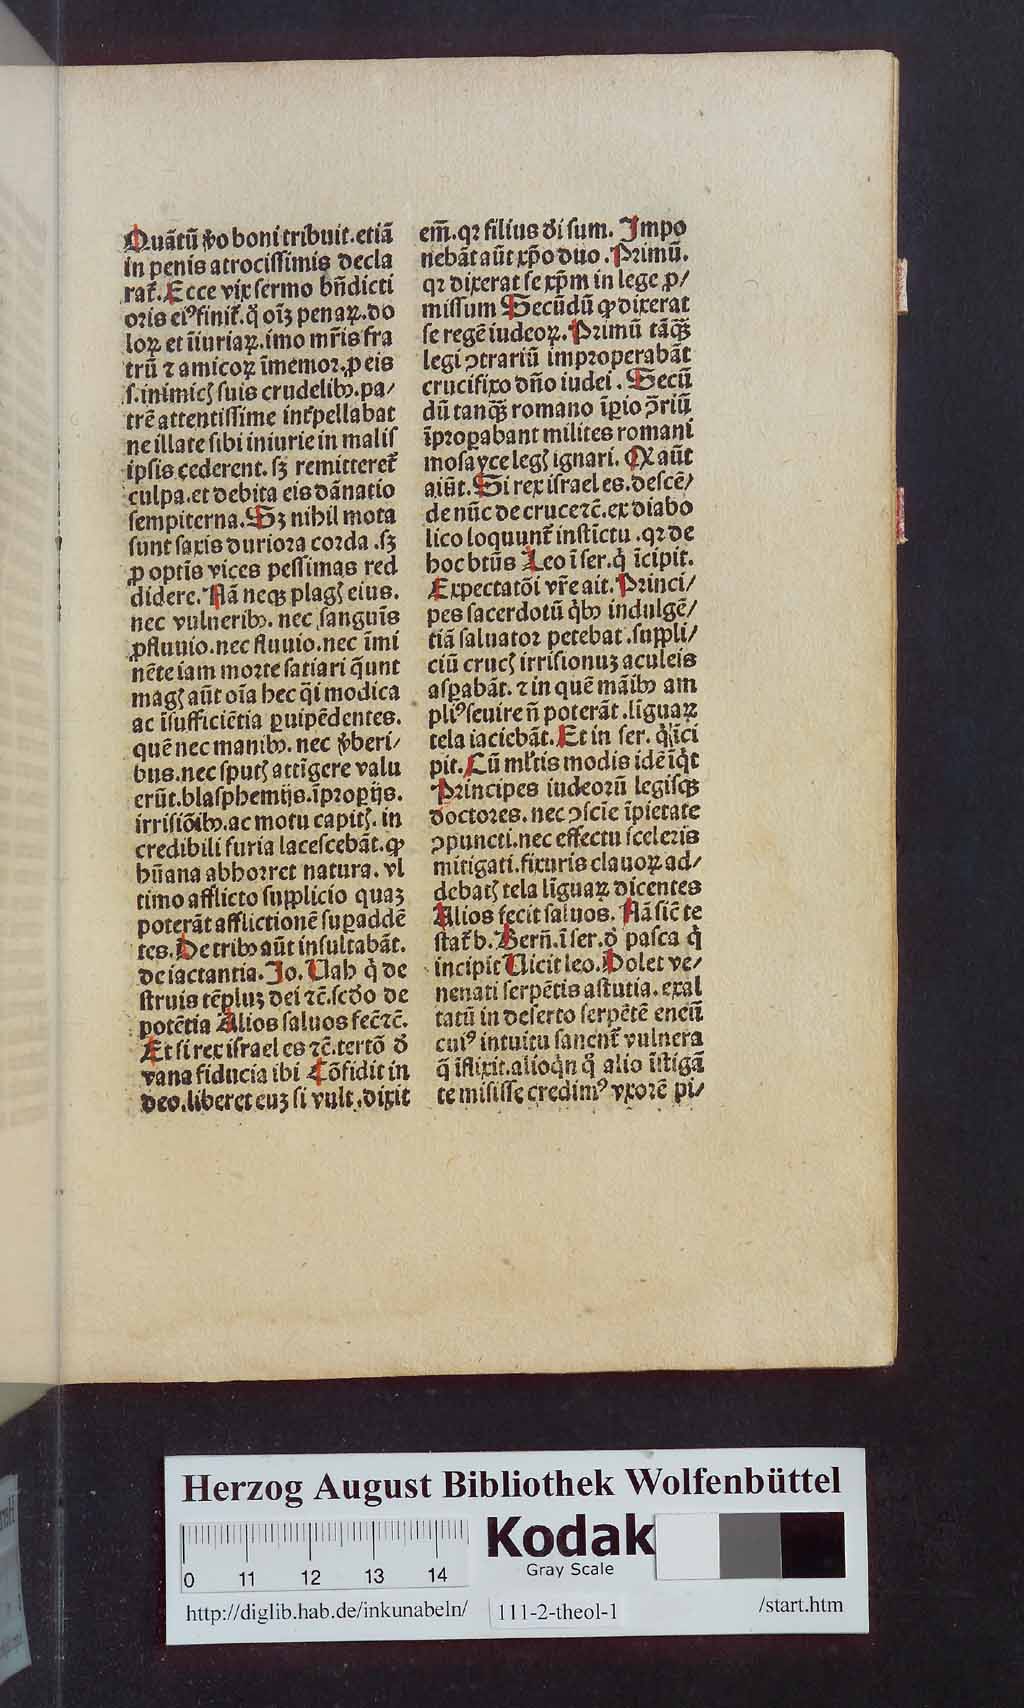 Quātū ꝟo boni tribuit.etiā
in penis atrocissimis decla
rat᷑.Ecce vix sermo bn̄dicti
oris eiꝰ finit᷑.q̄ oīꝫ penaꝝ.do
loꝝ et īiuriaꝝ.imo mr̄is fra
trū ⁊ amicoꝝ īmemor.ꝓ eis
.s.inimicꝭ suis crudelibꝫ.pa/
trē attentissime int᷑pellabat
ne illate sibi iniurie in malis
ipsis cederent. sꝫ remitteret᷑
culpa.et debita eis dānatio
sempiterna.Sꝫ nihil mota
sunt saxis duriora corda .sꝫ
ꝓ optīs vices pessimas red
didere.Nā neqꝫ plagꝭ eius.
nec vulneribꝫ. nec sanguīs
ꝓfluuio.nec fluuio.nec īmi
nēte iam morte satiari q̄unt
magꝭ aūt oīa hec q̄i modica
ac īsufficiētia ꝑuipēdentes.
quē nec manibꝫ. nec ꝟberi/
bus.nec sputꝭ attīgere valu
erūt.blasphemijs.īproꝑijs.
irrisiōibꝫ.ac motu capitꝭ. in
credibili furia lacescebāt.ꝙ
hūana abhorret natura. vl
timo afflicto supplicio quaꝫ
poterāt afflictionē suꝑaddē
tes.De tribꝫ aūt insultabāt.
de iactantia.Jo.Vah q̇ de
struis tēpluꝫ dei ⁊c̄.scd̄o de
potētia Alios saluos fec̄ ⁊c̄.
Et si rex israel es ⁊c̄.tertō d̄
vana fiducia ibi Cōfidit in
deo.liberet euꝫ si vult.dixit
em̄.qꝛ filius d̄i sum. Impo
nebāt aūt xp̄o duo .Primū.
qꝛ dixerat se xp̄m in lege ꝓ/
missum Secūdū ꝙ dixerat
se regē iudeoꝝ.Primū tāqꝫ
legi ꝯtrariū improperabāt
crucifixo dn̄o iudei . Secū
dū tanqꝫ romano īꝑio ꝯ̄riū
īproꝑabant milites romani
mosayce legꝭ ignari. Qꝛ aūt
aiūt.Si rex israel es.descē/
de nūc de cruce ⁊c̄.ex diabo
lico loquunt᷑ instīctu .qꝛ de
hoc bt̄us Leo ī ser.q̇ īcipit.
Expectatōi vr̄e ait.Princi/
pes sacerdotū q̇bꝫ indulgē/
tiā saluator petebat .suppli/
ciū crucꝭ irrisionuꝫ aculeis
asꝑabāt.⁊ in quē māibꝫ am
pliꝰ seuire n̄ poterāt .līguaꝝ
tela iaciebāt.Et in ser. q̇ īci
pit.Cū ml̄tis modis idē īq̇t
Principes iudeorū legisqꝫ
doctores. nec ꝯscīe īpietate
ꝯpuncti.nec effectu sceleris
mitigati.fixuris clauoꝝ ad/
debatꝭ tela līguaꝝ dicentes
Alios fecit saluos. Nā sic̄ te
stat᷑ b. Bern̄.ī ser.d̄ pasca q̇
incipit Vicit leo.Dolet ve/
nenati serpētis astutia. exal
tatū in deserto serpētē eneū
cuiꝰ intuitu sanent᷑ vulnera
q̄ īflixit.alioq̇n q̊ alio īstigā
te misisse credimꝰ vxorē pi/
Herzog August Bibliothek Wolfenbüttel
0 11 12 13 14
Kodak
Gray Scale
http://diglib.hab.de/inkunabeln/ 111-2-theol-1 /start.htm